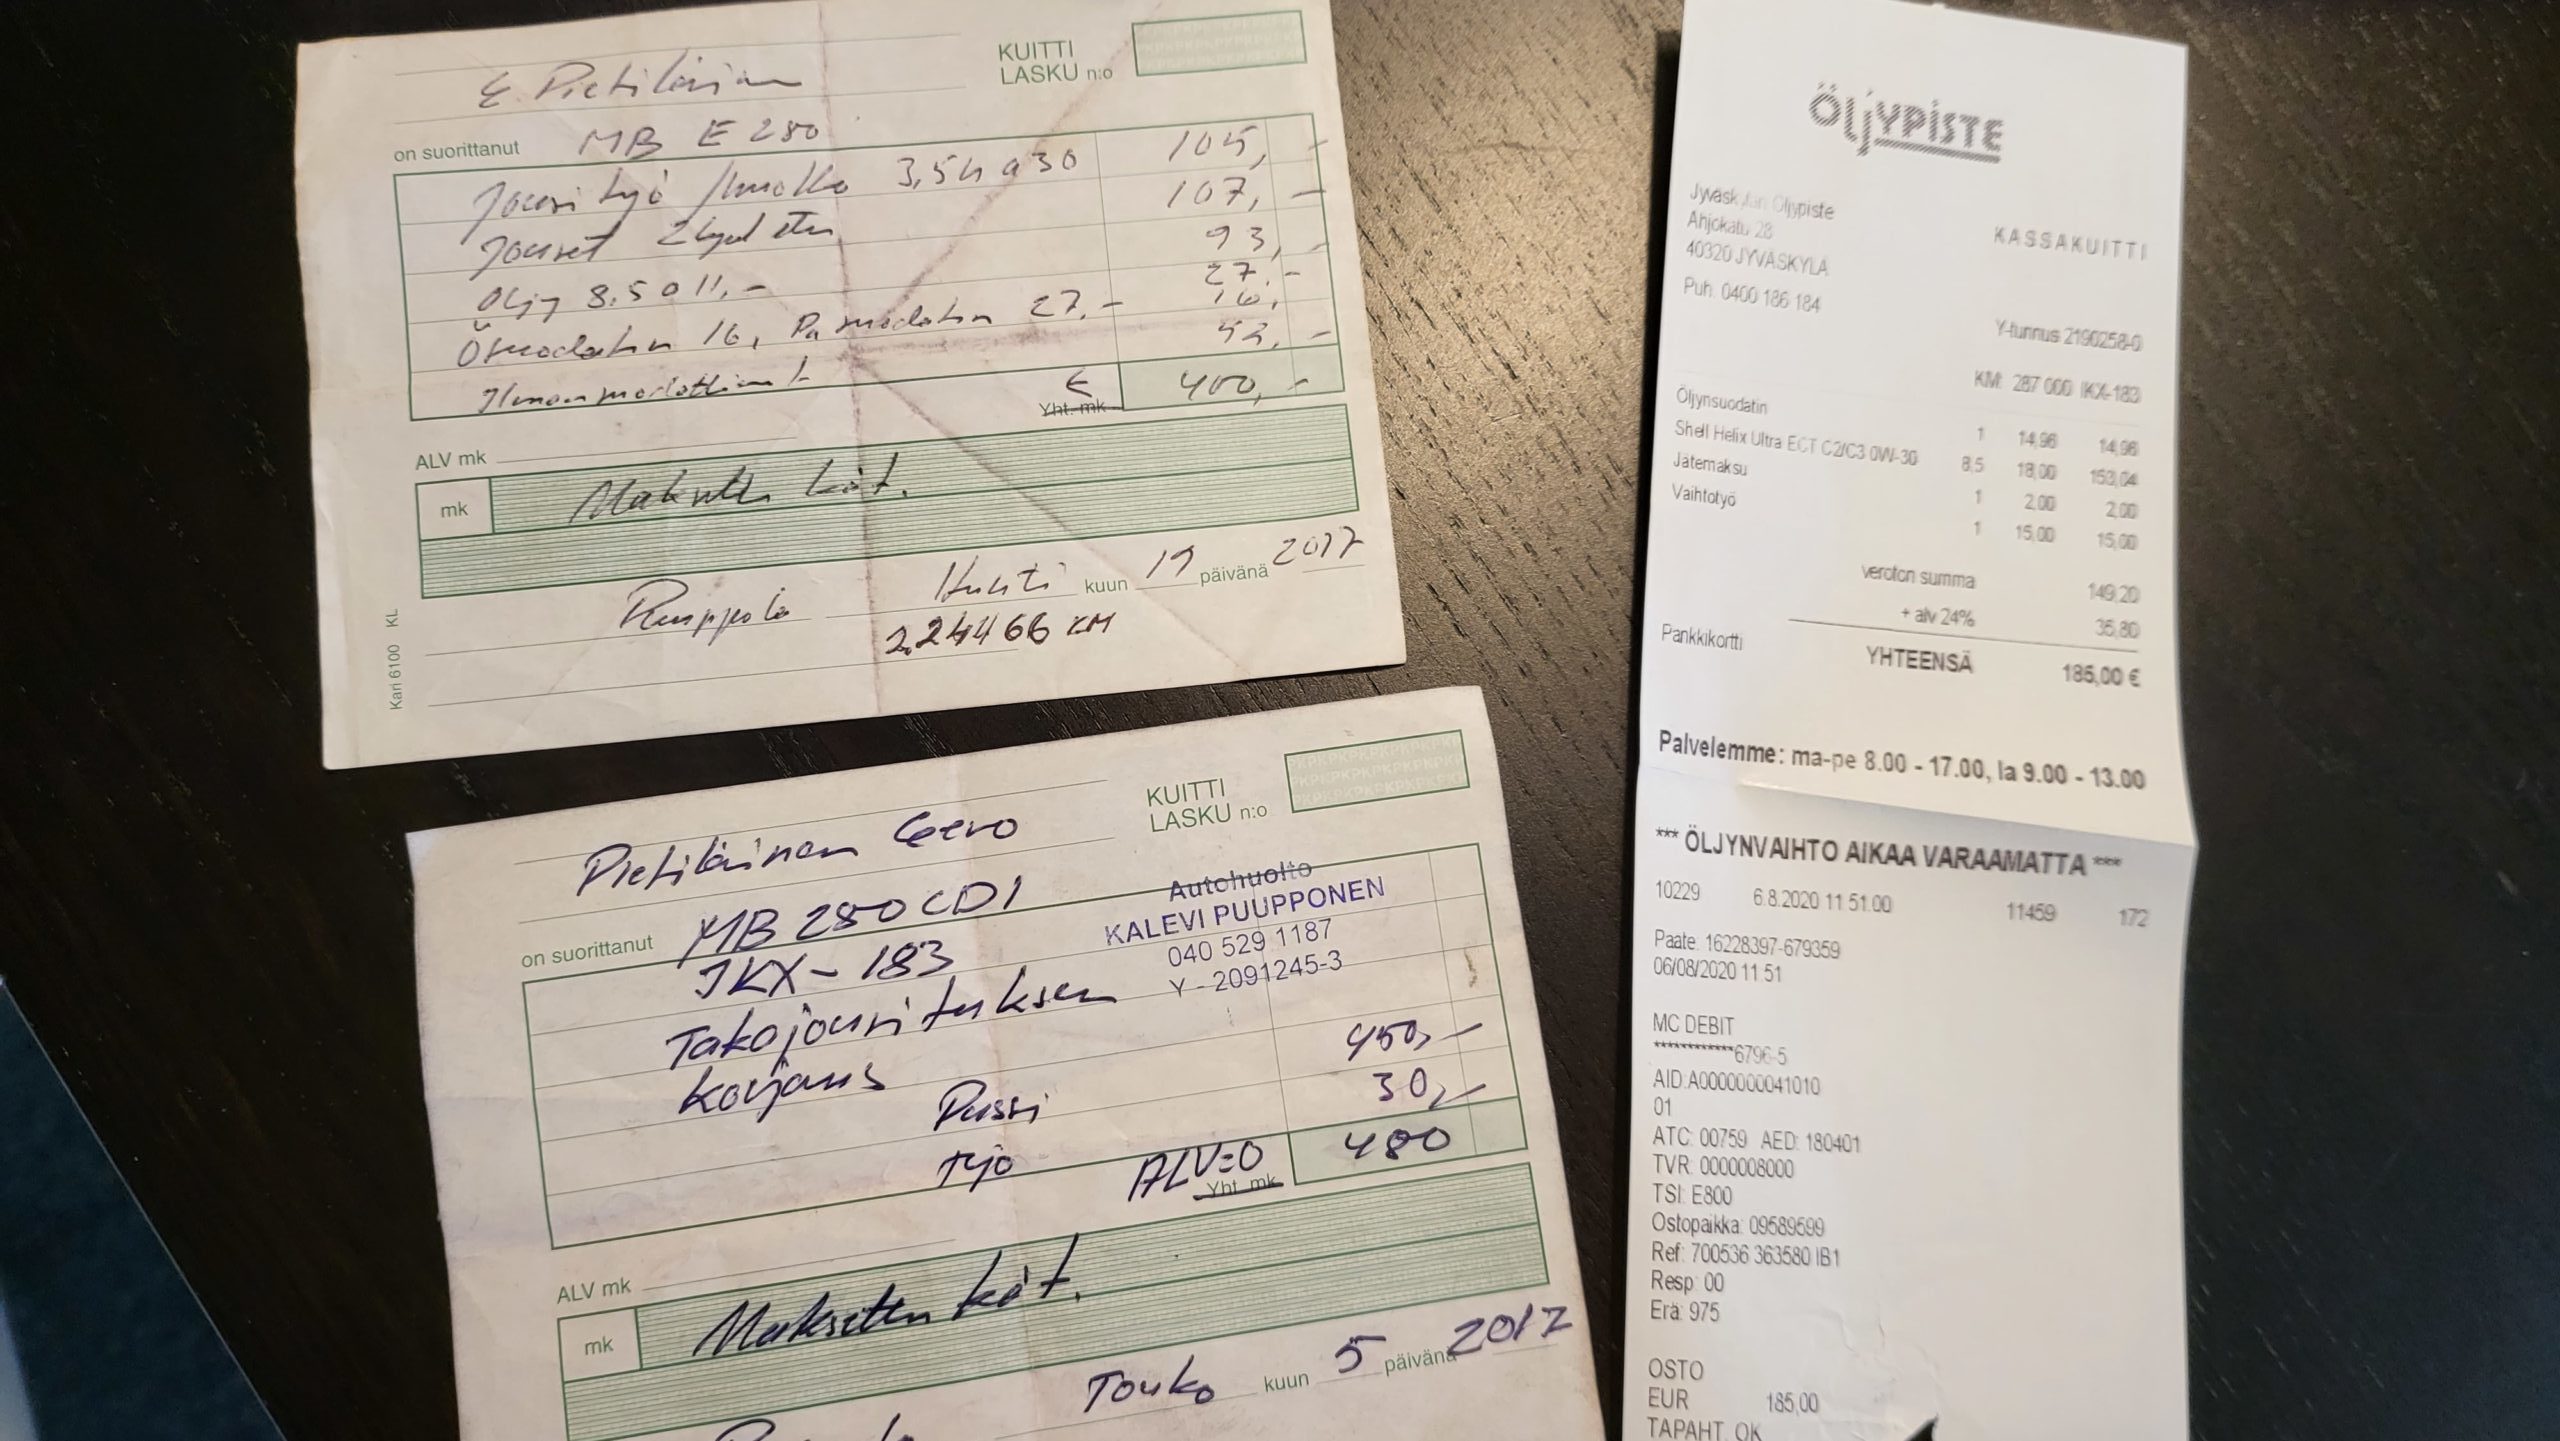 E. Pietiläinen
KUITTI
LASKU n:o
on suorittanut MB E 280
Jousi työ 3,5h a 30 105,-
Jouset 2 kpl etu 107,-
Öljy 8,5 a 11,- 93,-
27,-
Ö suodatin 16, Pa suodatin 27,- 16,
Ilman suodattimet 52,-
€ 400,-
Yht. mk
ALV mk
mk Maksettu kät.
Ruuppola Huhti kuun 19 päivänä 2017
224466 KM
Kari 6100 KL
Pietiläinen Eero
KUITTI
LASKU n:o
on suorittanut MB 280 CDI
Autohuolto
KALEVI PUUPPONEN
040 529 1187
Y - 2091245-3
IKX-183
Takajousituksen
korjaus
Pussi 450,-
työ 30,-
ALV=0 480
Yht. mk
ALV mk
mk Maksettu kät.
Touko kuun 5 päivänä 2017
ÖLJYPISTE
Jyväskylän Öljypiste
Ahjokatu 28
40320 JYVÄSKYLÄ
Puh. 0400 186 184
KASSAKUITTI
Y-tunnus 2190258-0
KM: 287 000 IKX-183
Öljynsuodatin 1 14,96 14,96
Shell Helix Ultra ECT C2/C3 0W-30 8,5 18,00 153,04
Jätemaksu 1 2,00 2,00
Vaihtotyö 1 15,00 15,00
veroton summa 149,20
+ alv 24% 35,80
Pankkikortti YHTEENSÄ 185,00 €
Palvelemme: ma-pe 8.00 - 17.00, la 9.00 - 13.00
*** ÖLJYNVAIHTO AIKAA VARAAMATTA ***
10229 6.8.2020 11 51.00 11459 172
Pääte: 16228397-679359
06/08/2020 11 51
MC DEBIT
************6796-5
AID:A0000000041010
01
ATC: 00759 AED: 180401
TVR: 0000008000
TSI: E800
Ostopaikka: 09589599
Ref: 700536 363580 IB1
Resp: 00
Erä: 975
OSTO
EUR 185,00
TAPAHT. OK